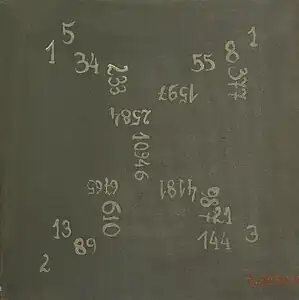 1
5
34
233
2584
10946
1
8
377
55
1597
6765
610
89
13
2
4181
987
21
144
3